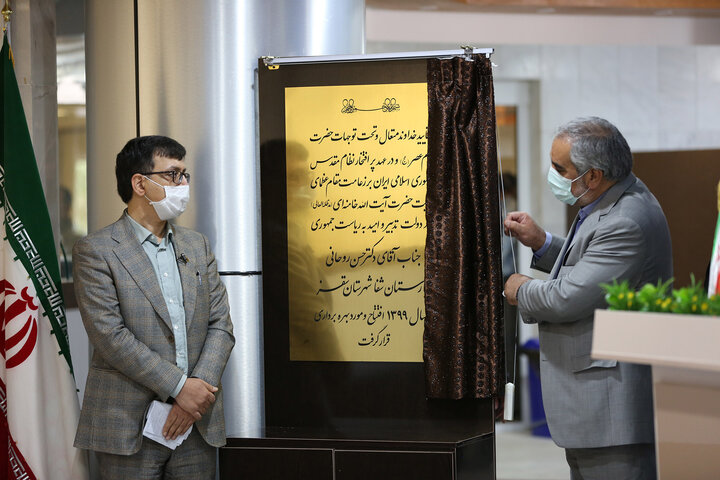 ایید خداوند متعال و تحت توجهات حضرت
م عصر (عج) و در عهد پر افتخار نظام مقدس
وری اسلامی ایران بر زعامت مقام عظمای
یت حضرت آیت الله خامنه ای (مدظله العالی)
دولت تدبیر و امید به ریاست جمهوری
جناب آقای دکتر حسن روحانی
ارستان شفا شهرستان سقز
سال ۱۳۹۹ افتتاح و مورد بهره برداری
قرار گرفت